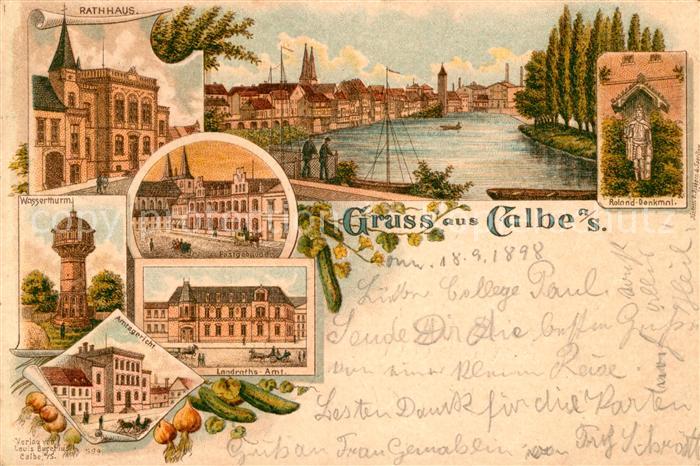 RATHHAUS.
Wasserthurm.
Postgebäude
Roland-Denkmal.
Gruss aus Calbe a/S.
Amtsgericht
Landraths-Amt.
Verlag von
Louis
Calbe, a/S.
18.9.1898
Lieber College Paul.
Sende Dir die besten Grüße
von einer kleinen Reise.
Besten Dank für die Karten
Gruß an Frau Gemahlin von Fritz